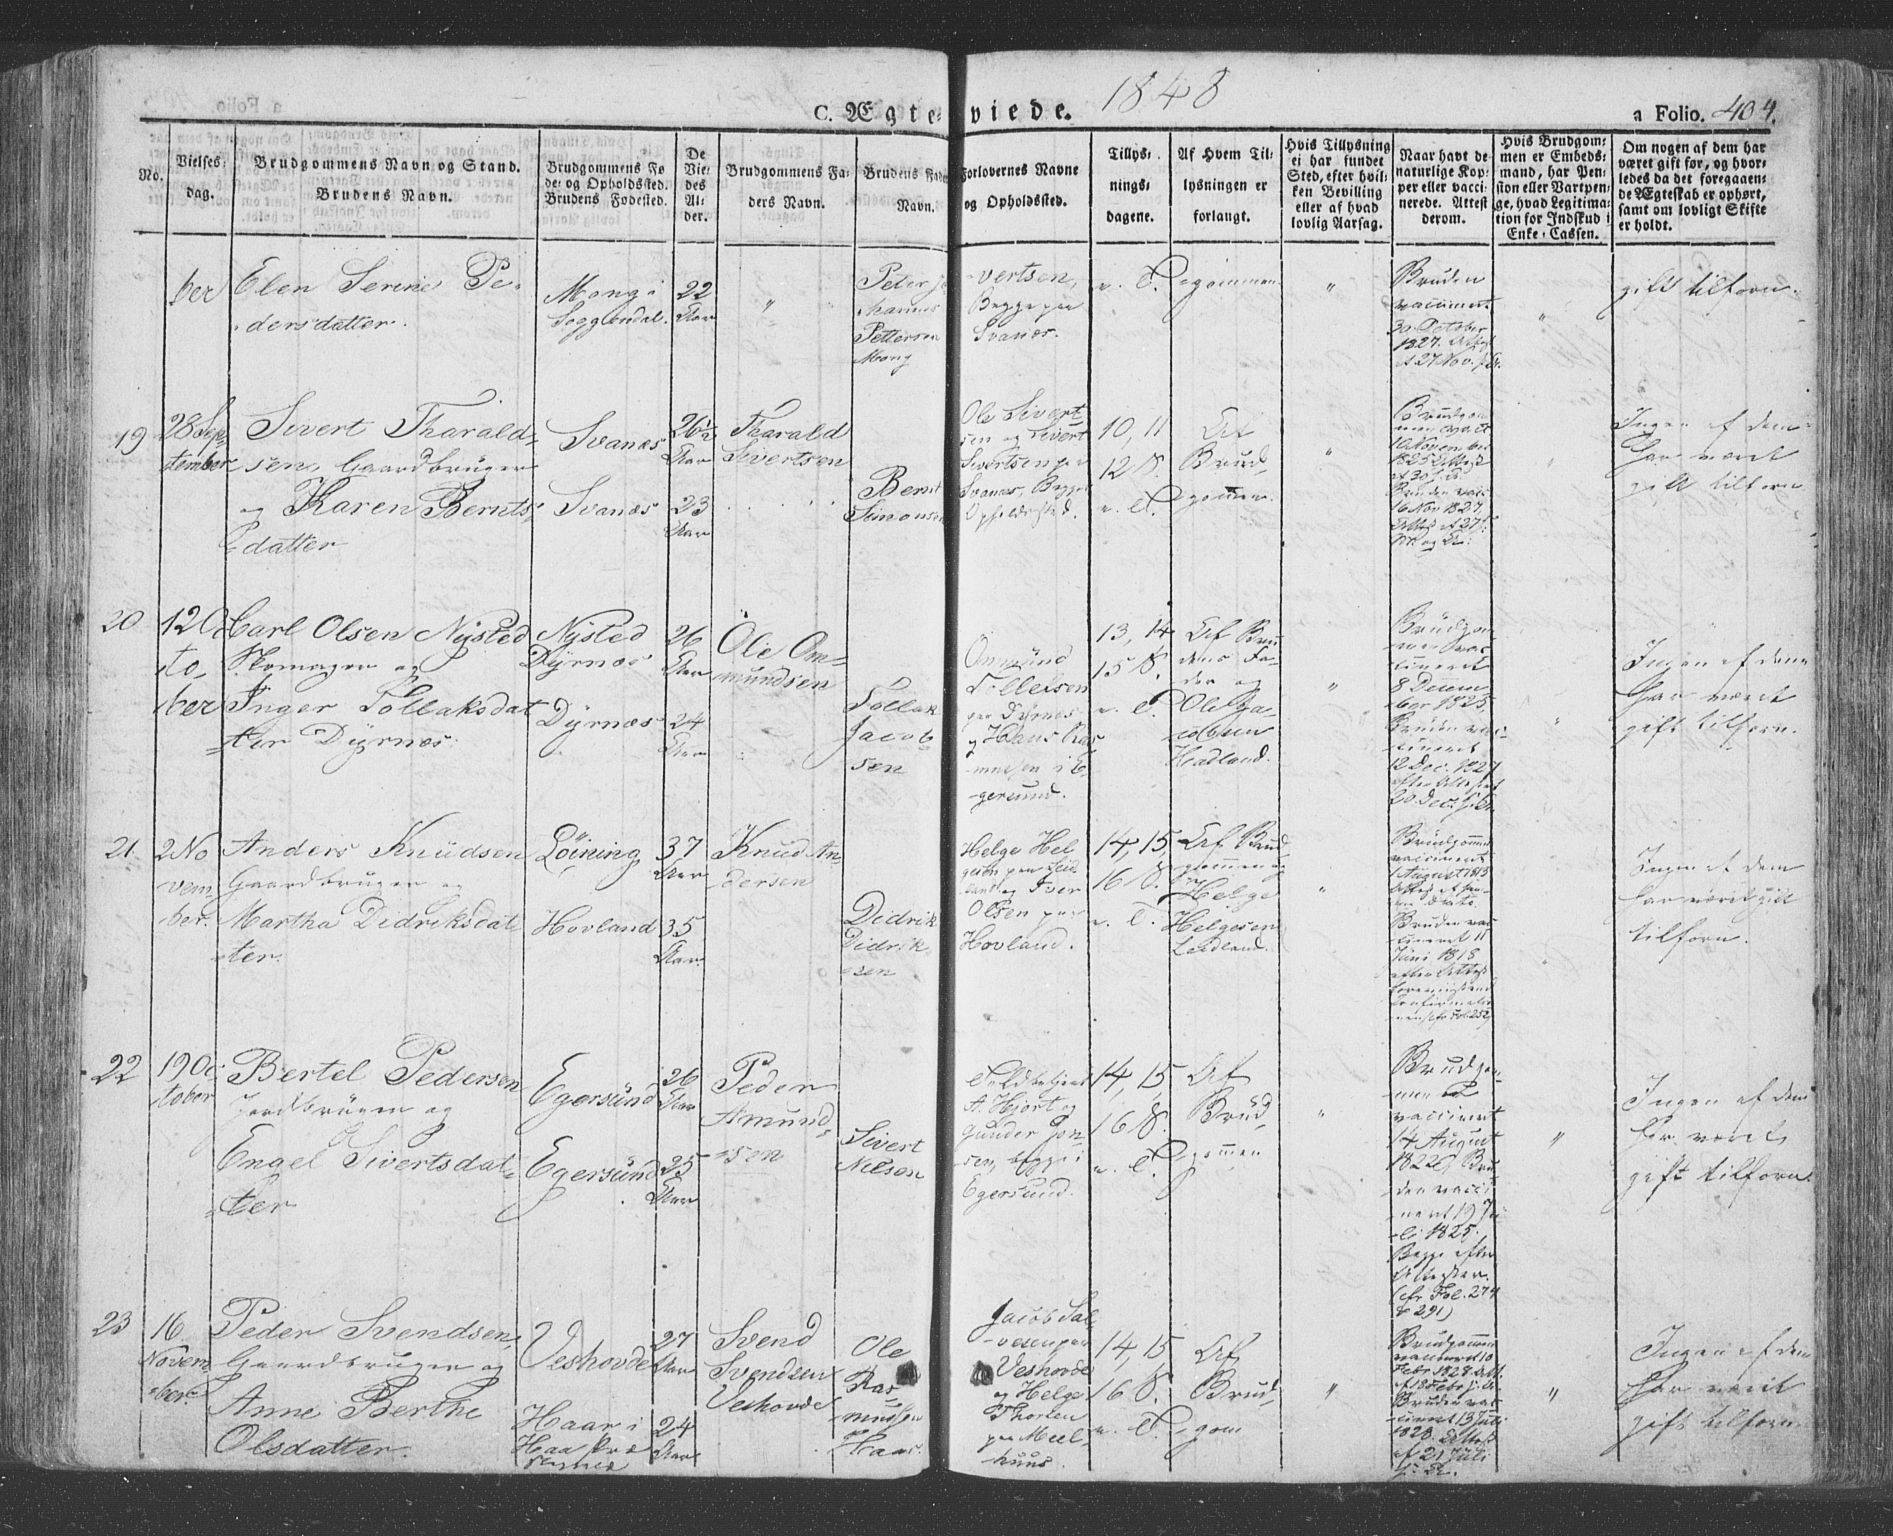 1848
C. Ægteviede.
a Folio. 404.
No.
Vielses-
dag.
Brudgommens Navn og Stand.
Brudens Navn.
Brudgommens Fø
de- og Opholdssted.
Brudens Fødested.
De
Vie-
des
Al-
der.
Brudgommens Fa-
ders Navn.
Brudens Faders
Navn.
Forlovernes Navne
og Opholdssted.
Tillys-
nings-
dagene.
Af Hvem Til-
lysningen er
forlangt.
Hvis Tillysning
ei har fundet
Sted, efter hvil-
ken Bevilling
eller af hvad
lovlig Aarsag.
Naar havt de
naturlige Kop-
per eller vacci-
nerede. Attest
derom.
Hvis Brudgom-
men er Embeds-
mand, har Pen-
sion eller Vartpen-
ge, hvad Legitima-
tion for Indskud i
Enke-Cassen.
Om nogen af dem har
været gift før, og hvor-
ledes da det foregaaen-
de Ægteskab er ophørt,
samt om lovligt Skifte
er holdt.
ber
Elen Serine Pe-
dersdatter.
Mong i
Soggendal.
22
Aar
"
Peter Jo
hannes
Pettersen
Mong
vertsen,
Begge paa
Svanæs.
gommen
"
Bruden
vaccineret
30 October
1827. Attest
af 27 Nov.
"
gift tilforn.
19
28 Sep-
tember
Sivert Tharald-
sen, Gaardbruger
og Karen Bernts-
datter
Svanæs
Svanæs
26½
Aar
23
Aar
Tharald
Sivertsen
Bernt
Simonsen
Ole Sivert-
sen og Sivert
Sivertsen paa
Svanæs, Begges
Opholdssted.
10, 11
12 S.
e. T.
Af
Brud-
gommen.
"
Brudgom-
men vacc.
10 Novembr
1825 Attest
Bruden vacc.
16 Nov 1827
"
Ingen af dem
har været
gift tilforn
20
12 Oc-
to-
ber
Carl Olsen Nysted
Skomager og
Inger Tollaksdat-
ter Dyrnæs.
Nysted
Dyrnæs
Dyrnæs
26
Aar
24
Aar
Ole Om-
mundsen
Tollak
Jacob-
sen
Ommund
Tollefsen
paa Dyrnæs
og Hans Ras-
mussen i E-
gersund.
13, 14
15 S.
e. T.
Af Bru-
dens Fa-
der og
Ole Ja-
cobsen
Headland.
"
Brudgom-
men vac-
cineret
8 Decem-
ber 1825.
Bruden vac-
cineret
12 Dec. 1827
efter Attest
20 Dec.
"
Ingen af dem
har været
gift tilforn.
21.
2 No
vem-
ber.
Anders Knudsen
Gaardbruger og
Martha Didriksdat-
ter.
Loining
Hovland
37
Aar
35
Aar
Knud An-
dersen
Didrik
Didrik-
sen
Helge Hel
gesen paa Leid
land og Iver
Olsen paa
Hovland.
14, 15
16 S.
e. T.
Af Brud-
gommen og
Helge
Helgesen
Leidland.
"
Brudgommen
vaccineret
August 1813
Bruden vac-
cineret 11
Juni 1818
efter Attest
Fol. 252
Ingen af dem
har været gift
tilforn.
22
19 Oc-
tober
Bertel Pedersen
Jordbruger og
Engel Sivertsdat-
ter
Egersund
Egersund
26
Aar
25
Aar
Peder
Amund-
sen
Sivert
Nilsen
Toldbetjent
A. Hjort og
Gunder Jon-
sen, begge i
Egersund.
14, 15
16 S.
e. T.
Af
Brud-
gommen
"
Brudgom-
men
vaccinert
14 August
1822, Bru-
den vacci-
nert 19 Ju-
li 1825.
Begge efter
Attester.
(cfr Fol. 274
& 291)
"
Ingen af dem
har været
gift tilforn.
23
16
Novem-
ber.
Peder Svendsen,
Gaardbruger og
Anne Berthe
Olsdatter.
Veshovde
Haar i
Haa Præ
27
Aar
24
Aar
Svend
Svendsen
Veshovde
Ole
Ras-
mussen
Haar.
Jacob Sal-
vesen paa
Veshovde
og Helge
Thorsen
paa Meel-
huus.
14, 15
16 S.
e. T.
Af
Brud-
gom
"
Brudgommen
vaccineret 10
Febr 1828 Att.
af 18 Febr
Bruden vac-
cineret 13 Juli
1828. Attest
af 21 Juli
"
Ingen af dem
har været
gift tilforn